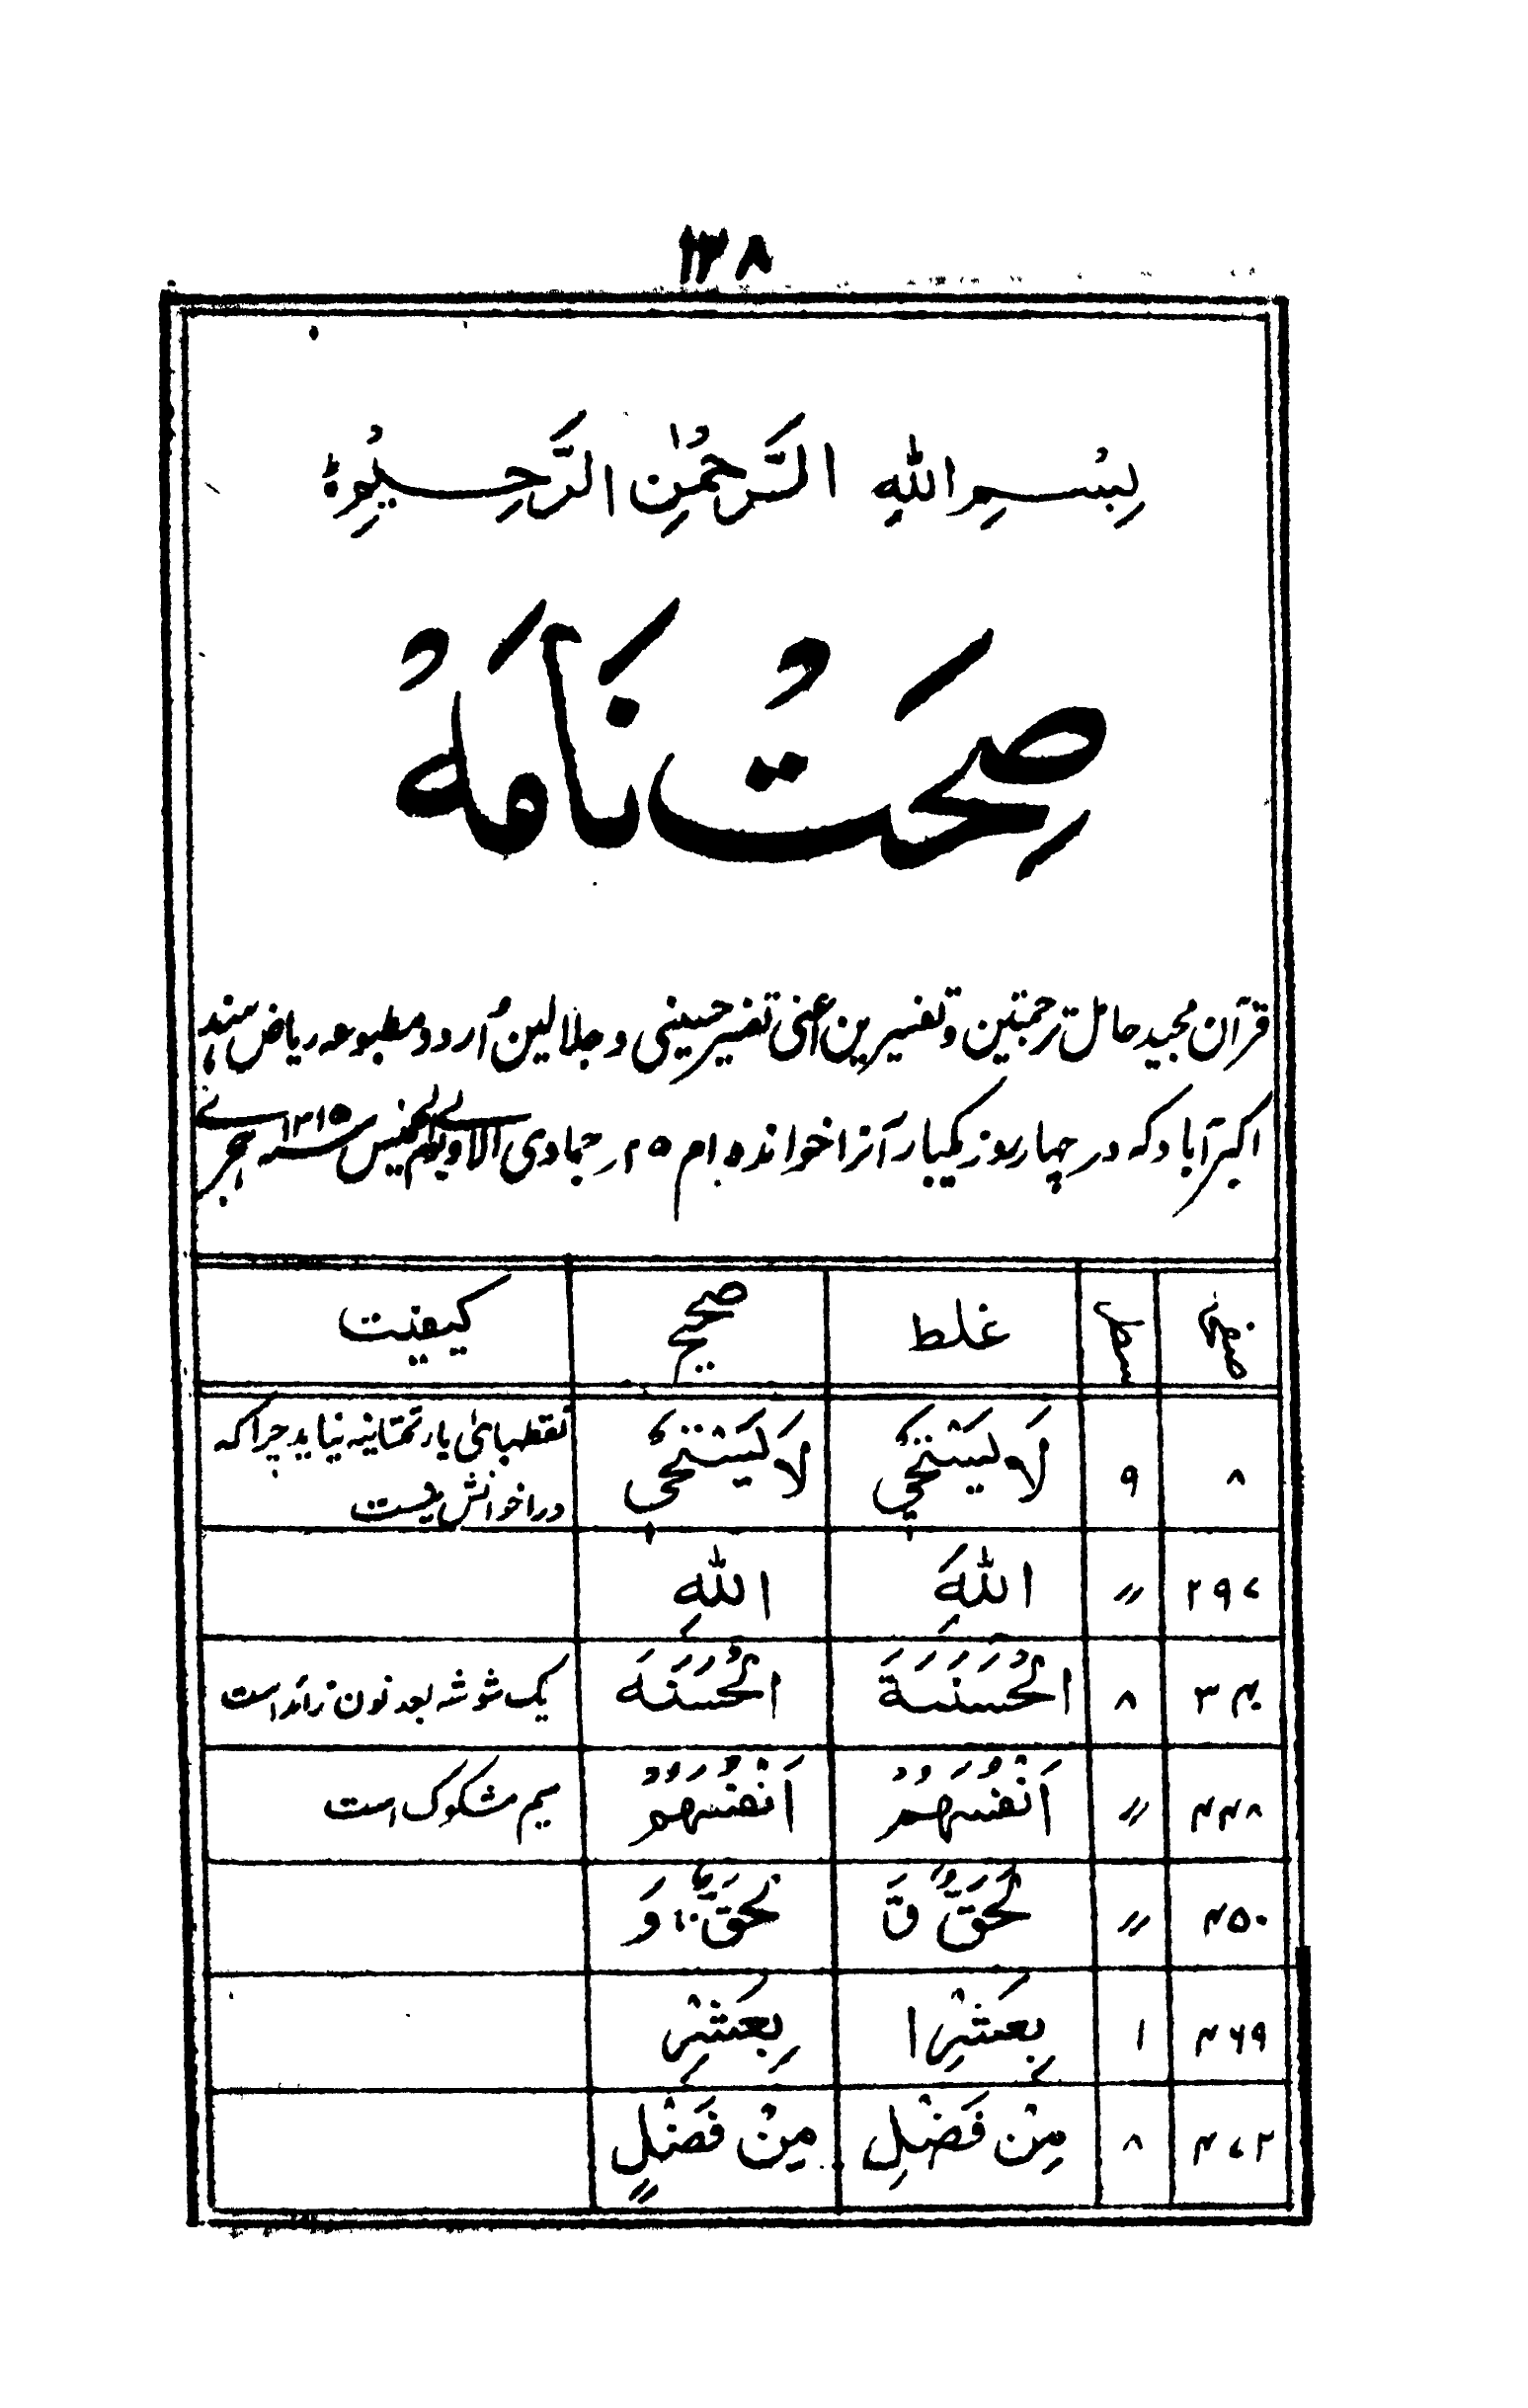 ۱۳۸
بِسْمِ اللّٰهِ الرَّحْمٰنِ الرَّحِيْمِ
صِحَتْ نَامَهْ
قرآن مجید حامل ترجمتین و تفسیرین اعنی تفسیر حسینی و جلالین اُردو مطبوعہ ریاض ہند
اکبر آباد که در چهار روز یکبار آنرا خوانده ام ۵ ۲ ر جمادی الاولی الخمیس سنہ ۱۳۱۵ ہجری
صفحہ سطر غلط صحیح کیفیت
۸ ۹ لَا يَسْتَحْيِ لَا يَسْتَحْي نقطہای یار تحتانیہ نیاید چرا کہ
در اخوانش نیست
۲۹۷ // اللّٰهَِ اللّٰهِ
۳۰۴ ۸ الْحُسَنَةَ الْحُسَنَهَ یک شوشہ بعد نون زائد است
۴۴۸ // اَنْفُسَهُمْ اَنْفُسَهُمْ میم مشکوک است
۴۵۰ // لَحَقٌّ قَ لَحَقٌّ وَ
۴۶۹ ۱ بِعَشْرِ ا بِعَشْرِ
۴۷۲ ۸ مِنْ فَضْلِ مِنْ فَضْلٍ